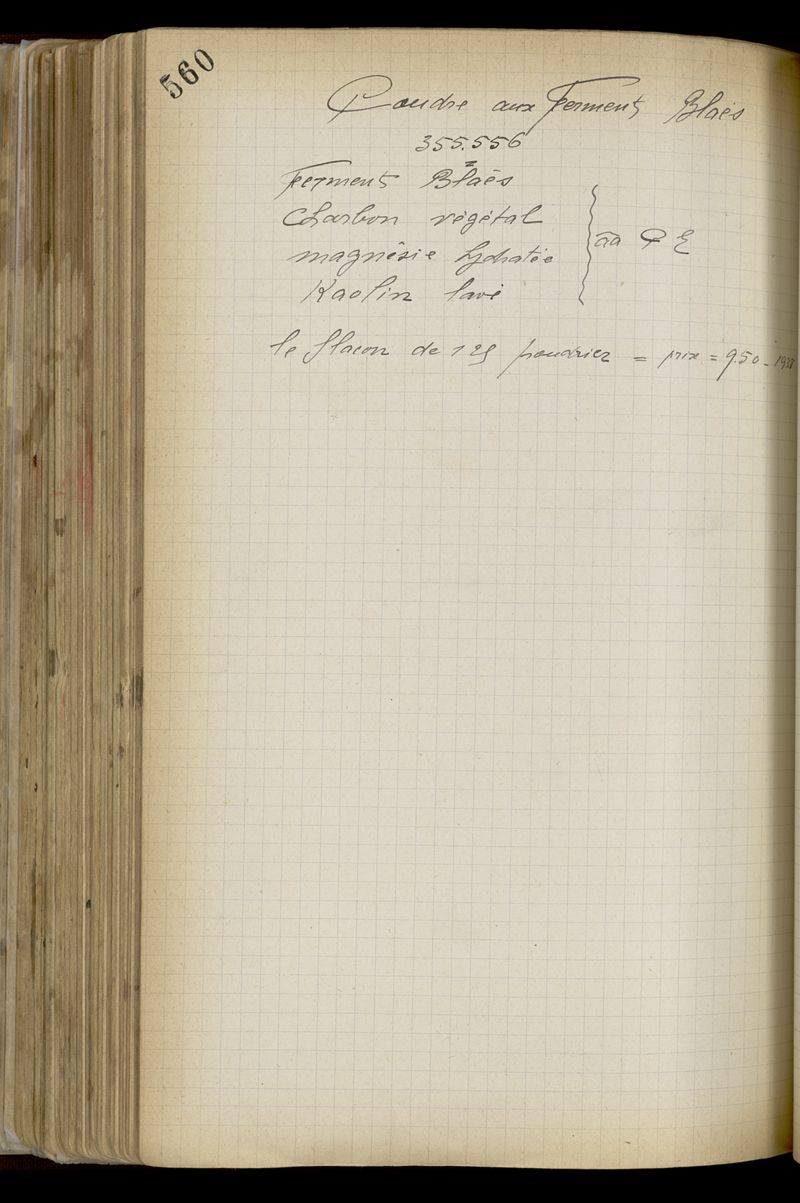 560
Poudre aux Ferments Blaës
355.556
Ferments Blaës
Charbon végétal
magnésie hydratée
Kaolin lavé
āā P E
le flacon de 125 poudrier = prix = 9.50 - 1938